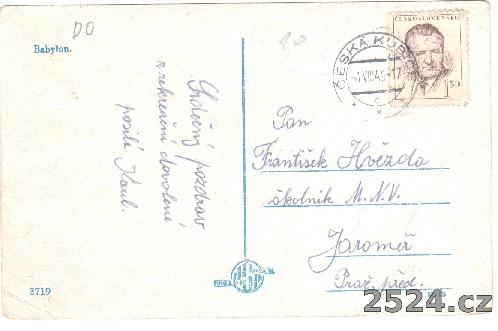 DO
Babylon.
Srdečný pozdrav
z rekreační dovolené
posílá Karel.
3719
ČESKÁ KUBICE
ČESKOSLOVENSKO
1.50
Pan
František Hvězda
školnik M.N.V.
Jaroměř
Praž. před.
2524.cz